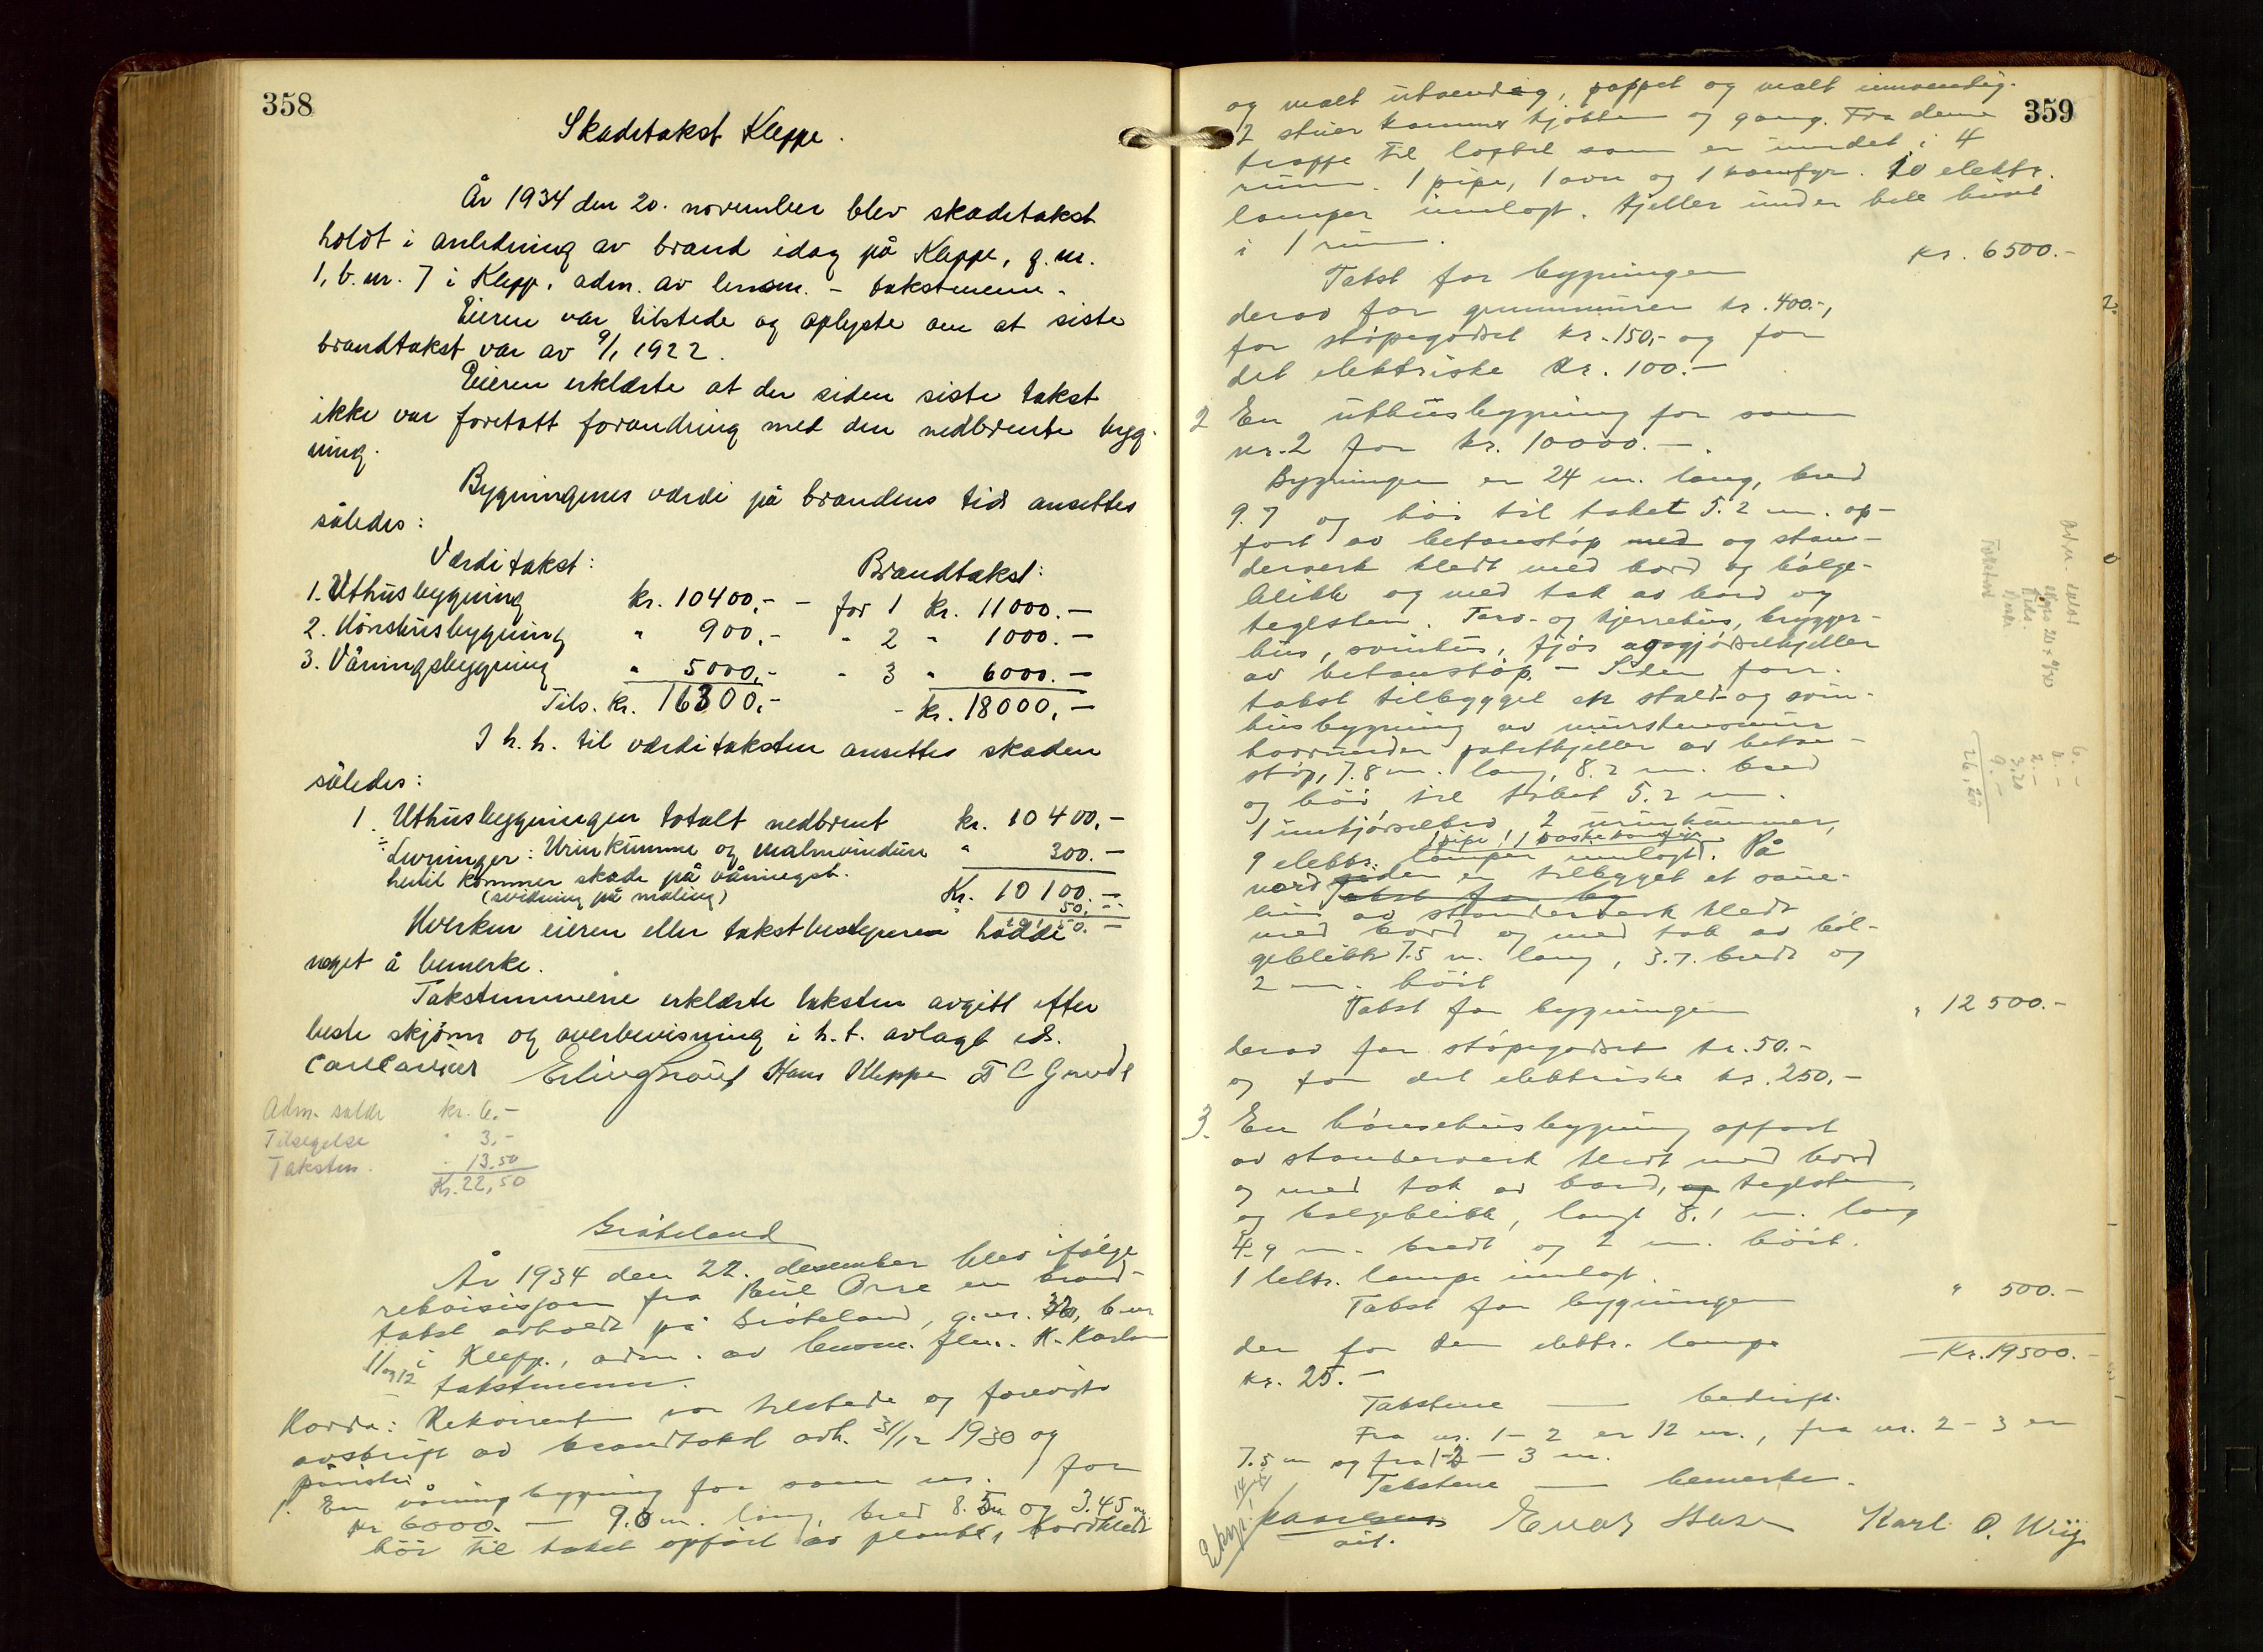 358
Skadetakst Kleppe.
År 1934 den 20. november blev skadetakst
holdt i anledning av brand idag på Kleppe, g.nr.
1, b.nr. 7 i Klepp. adm. av lensm. - takstmenn.
Eieren var tilstede og oplyste om at siste
brandtakst var av 9/1 1922.
Eieren erklærte at der siden siste takst
ikke var foretatt forandring med den nedbrente byg-
ning.
Bygningenes værdi på brandens tid ansettes
således:
Værditakst: Brandtakst:
1. Uthusbygning kr. 10400,- - for 1 kr. 11000.-
2. Hønshusbygning " 900,- " 2 " 1000.-
3. Våningsbygning " 5000,- " 3 " 6000.-
Tils. kr. 16300,- - kr. 18000,-
I h. h. til værditaksten ansettes skaden
således:
1. Uthusbygningen totalt nedbrent kr. 10400,-
÷ Levninger: Urinkumme og malmvinduer " 300.-
Kr. 10100.-
hertil kommer skade på våningsb.
(svidning på maling) " 50.-
Hverken eieren eller takstbestyreren hadde
noget å bemerke.
Takstmennene erklærte taksten avgitt efter
beste skjønn og overbevisning i h. t. avlagt ed.
Hans Kleppe
Adm. saldr kr. 6.-
Tilsigelse " 3,-
Taksten. " 13.50
Kr. 22,50
År 1934 den 22. desember blev ifølge
rekvisisjon fra Orre en brand-
takst avholdt på g.nr. b.nr
11 og 12 i Klepp, adm. av lensm. K. Karlsen
takstmenn.
Horda: Rekvirenten var tilstede og foreviste
avskrift av brandtakst avh. 31/12 1930 og
påviste
1. En våningbygning før som nr. 1 for
kr 6000.- 9.0 m. lang, bred 8. og 3.45 m
høi til taket opført av planker, bordkledt
359
og malt utvendig, pappet og malt innvendig.
2 stuer kammer kjøkken og gang. Fra denne
trappe til loftet som er inndelt i 4
rum. 1 pipe, 1 ovn og 1 komfyr. 10 elektr.
lamper innlagt. Kjeller under hele huset
i 1 rum.
Takst for bygningen kr. 6500.-
derav for grunnmuren kr. 400.-,
for støpegodset kr. 150,- og for
det elektriske kr. 100.-
2 En uthusbygning før som
nr. 2 for kr. 10000.-.
Bygningen er 24 m. lang, bred
9.7 og høi til taket 5.2 m. op-
ført av betonstøp med og stan-
derverk kledt med bord og bølge-
blikk og med tak av bord og
teglsten. Torv- og kjerrehus, brygger-
hus, svinhus, fjøs og gjødselkjeller
av betonstøp. - Siden forr.
takst tilbygget en stald- og svin-
husbygning av murstensmur
hvorunder potetkjeller av beton-
støp, 7.8 m. lang, 8.2 m. bred
og høi til taket 5.2 m.
1 innkjørselbro, 2 urinkummer,
1 pipe, 1 vaskekomfyr
9 elektr. lamper innlagt. På
nordsiden er tilbygget et saue-
Takst for by
hus av standerverk kledt
med bord og med tak av bøl-
geblikk 7.5 m. lang, 3.7. bredt og
2 m. høit
Takst for bygningen " 12500.-
derav for støpegodset kr. 50.-
og for det elektriske kr. 250,-
3. En hønsehusbygning opført
av standerverk kledt med bord
og med tak av bord, og teglsten,
og bølgeblikk, langt 8.1 m. lang
4.9 m. bredt og 2 m. høit.
1 lektr. lampe innlagt.
Takst for bygningen " 500.-
der for den elektr. lampe Kr. 19500.-
kr. 25.-
Takstene — bedrift.
Fra nr. 1 - 2 er 12 m., fra nr. 2 - 3 er
7.5 m og fra 1 - 3 m.
Takstene — bemerke.
Karlsen
Karl O. Wiig
26,20